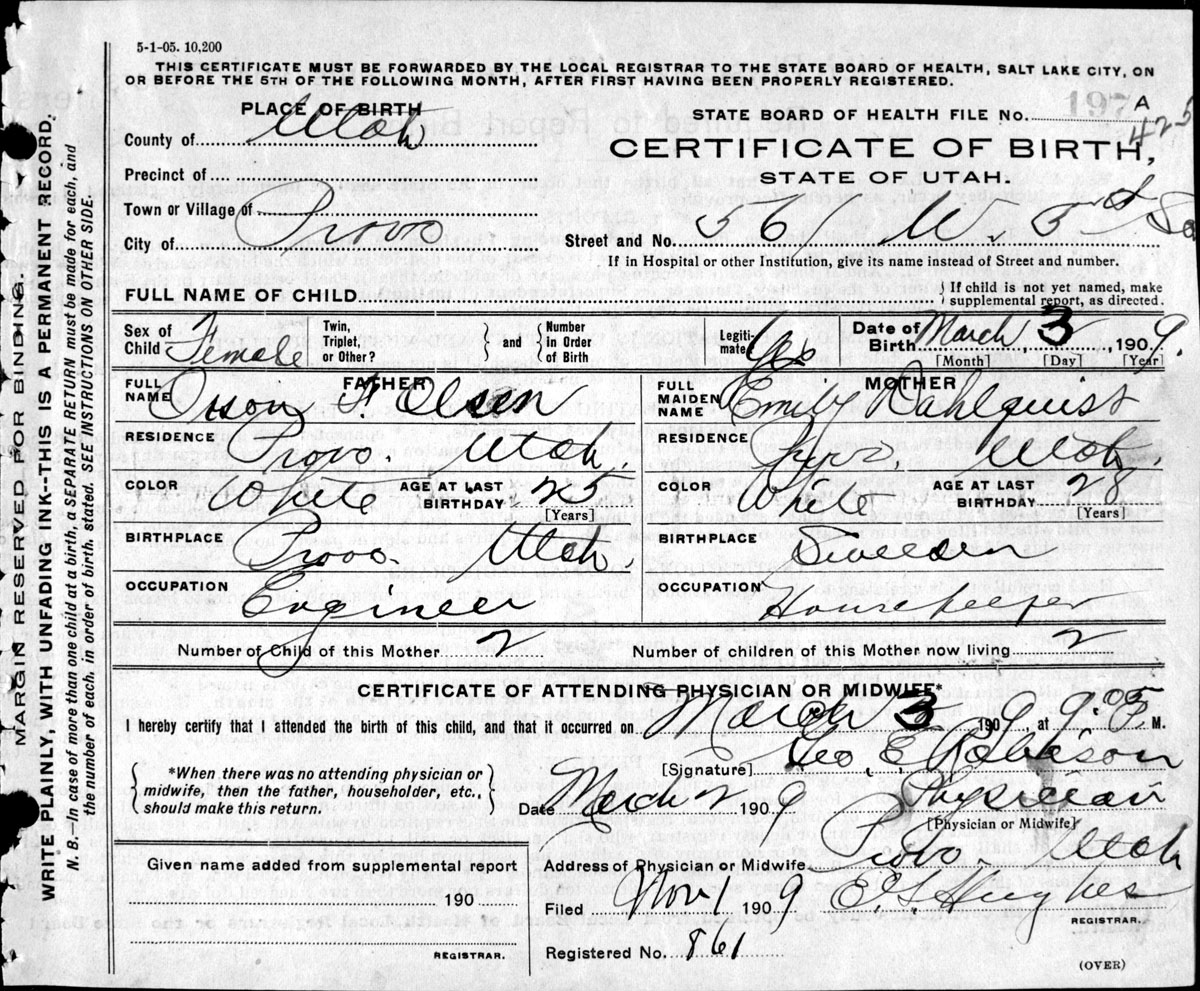 5-1-05. 10,200
THIS CERTIFICATE MUST BE FORWARDED BY THE LOCAL REGISTRAR TO THE STATE BOARD OF HEALTH, SALT LAKE CITY, ON
OR BEFORE THE 5TH OF THE FOLLOWING MONTH, AFTER FIRST HAVING BEEN PROPERLY REGISTERED.
MARGIN RESERVED FOR BINDING.
WRITE PLAINLY, WITH UNFADING INK--THIS IS A PERMANENT RECORD.
N. B.--In case of more than one child at a birth, a SEPARATE RETURN must be made for each, and
the number of each, in order of birth, stated. SEE INSTRUCTIONS ON OTHER SIDE.
PLACE OF BIRTH
County of Utah
Precinct of
Town or Village of
City of Provo
STATE BOARD OF HEALTH FILE No. 197 A
425
CERTIFICATE OF BIRTH,
STATE OF UTAH.
Street and No. 561 W. 3rd So
If in Hospital or other Institution, give its name instead of Street and number.
FULL NAME OF CHILD
{ If child is not yet named, make
supplemental report, as directed.
Sex of Child Female
Twin, Triplet, or Other?
} and {
Number in Order of Birth
Legitimate? Yes
Date of Birth March 3 1909.
[Month] [Day] [Year]
FATHER
FULL NAME F Olsen
RESIDENCE Provo. Utah.
COLOR White AGE AT LAST BIRTHDAY 25
[Years]
BIRTHPLACE Provo. Utah.
OCCUPATION Engineer
MOTHER
FULL MAIDEN NAME Emily Dahlquist
RESIDENCE Provo. Utah.
COLOR White AGE AT LAST BIRTHDAY 28
[Years]
BIRTHPLACE Sweeden
OCCUPATION Housekeeper
Number of Child of this Mother 2 Number of children of this Mother now living 2
CERTIFICATE OF ATTENDING PHYSICIAN OR MIDWIFE*
I hereby certify that I attended the birth of this child, and that it occurred on March 3 1909, at 9:05 P. M.
{ *When there was no attending physician or
midwife, then the father, householder, etc.,
should make this return. }
[Signature] Geo. E. Robison
Date March 1909 Physician
[Physician or Midwife]
Address of Physician or Midwife Provo. Utah
Given name added from supplemental report
190
REGISTRAR.
Filed Nov 1 1909 Hughes
REGISTRAR.
Registered No. 861
(OVER)